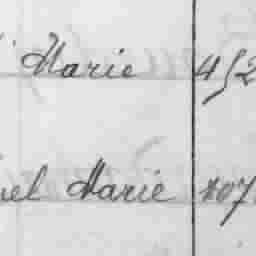 Marie 452
el Marie 107